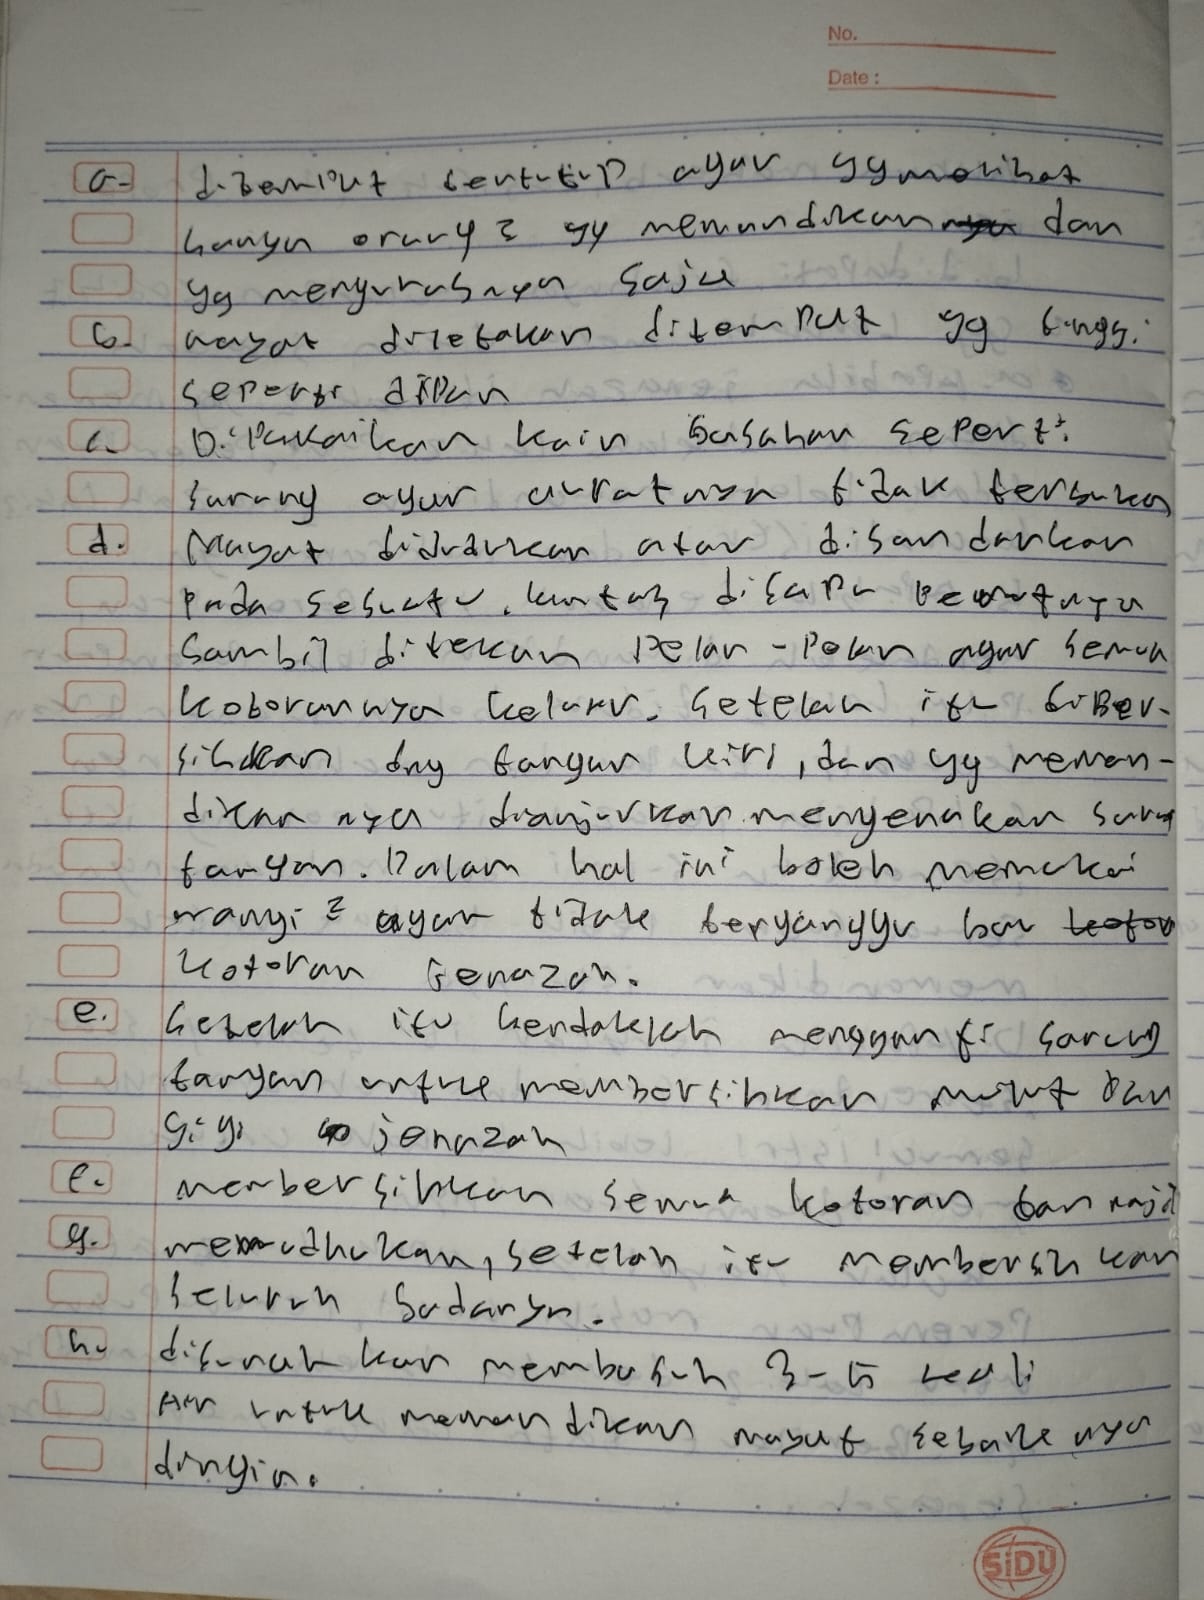 No.
Date :
a. ditempat tertutup agar yg melihat
hanya orang2 yg memandikan dan
yg mengurusnya saja
b. mayat diletakan ditempat yg tinggi
seperti dipan
c. Dipakaikan kain basahan seperti
sarung agar auratnya tidak terbuka
d. Mayat didudukan atau disandarkan
pada sesuatu, lantas disapu perutnya
sambil ditekan pelan-pelan agar semua
kotorannya keluar. Setelah itu diber-
sihkan dng tangan kiri, dan yg meman-
dikan nya dianjurkan mengenakan sarung
tangan. Dalam hal ini boleh memakai
wangi2 agar tidak terganggu bau
kotoran jenazah.
e. Setelah itu hendaklah mengganti sarung
tangan untuk membersihkan mulut dan
gigi jenazah
f. membersihkan semua kotoran dan najis
g. mewudhukan, setelah itu membersihkan
seluruh badanya.
h. disunahkan membasuh 3-5 kali
Air untuk memandikan mayat sebaiknya
dingin.
SiDU